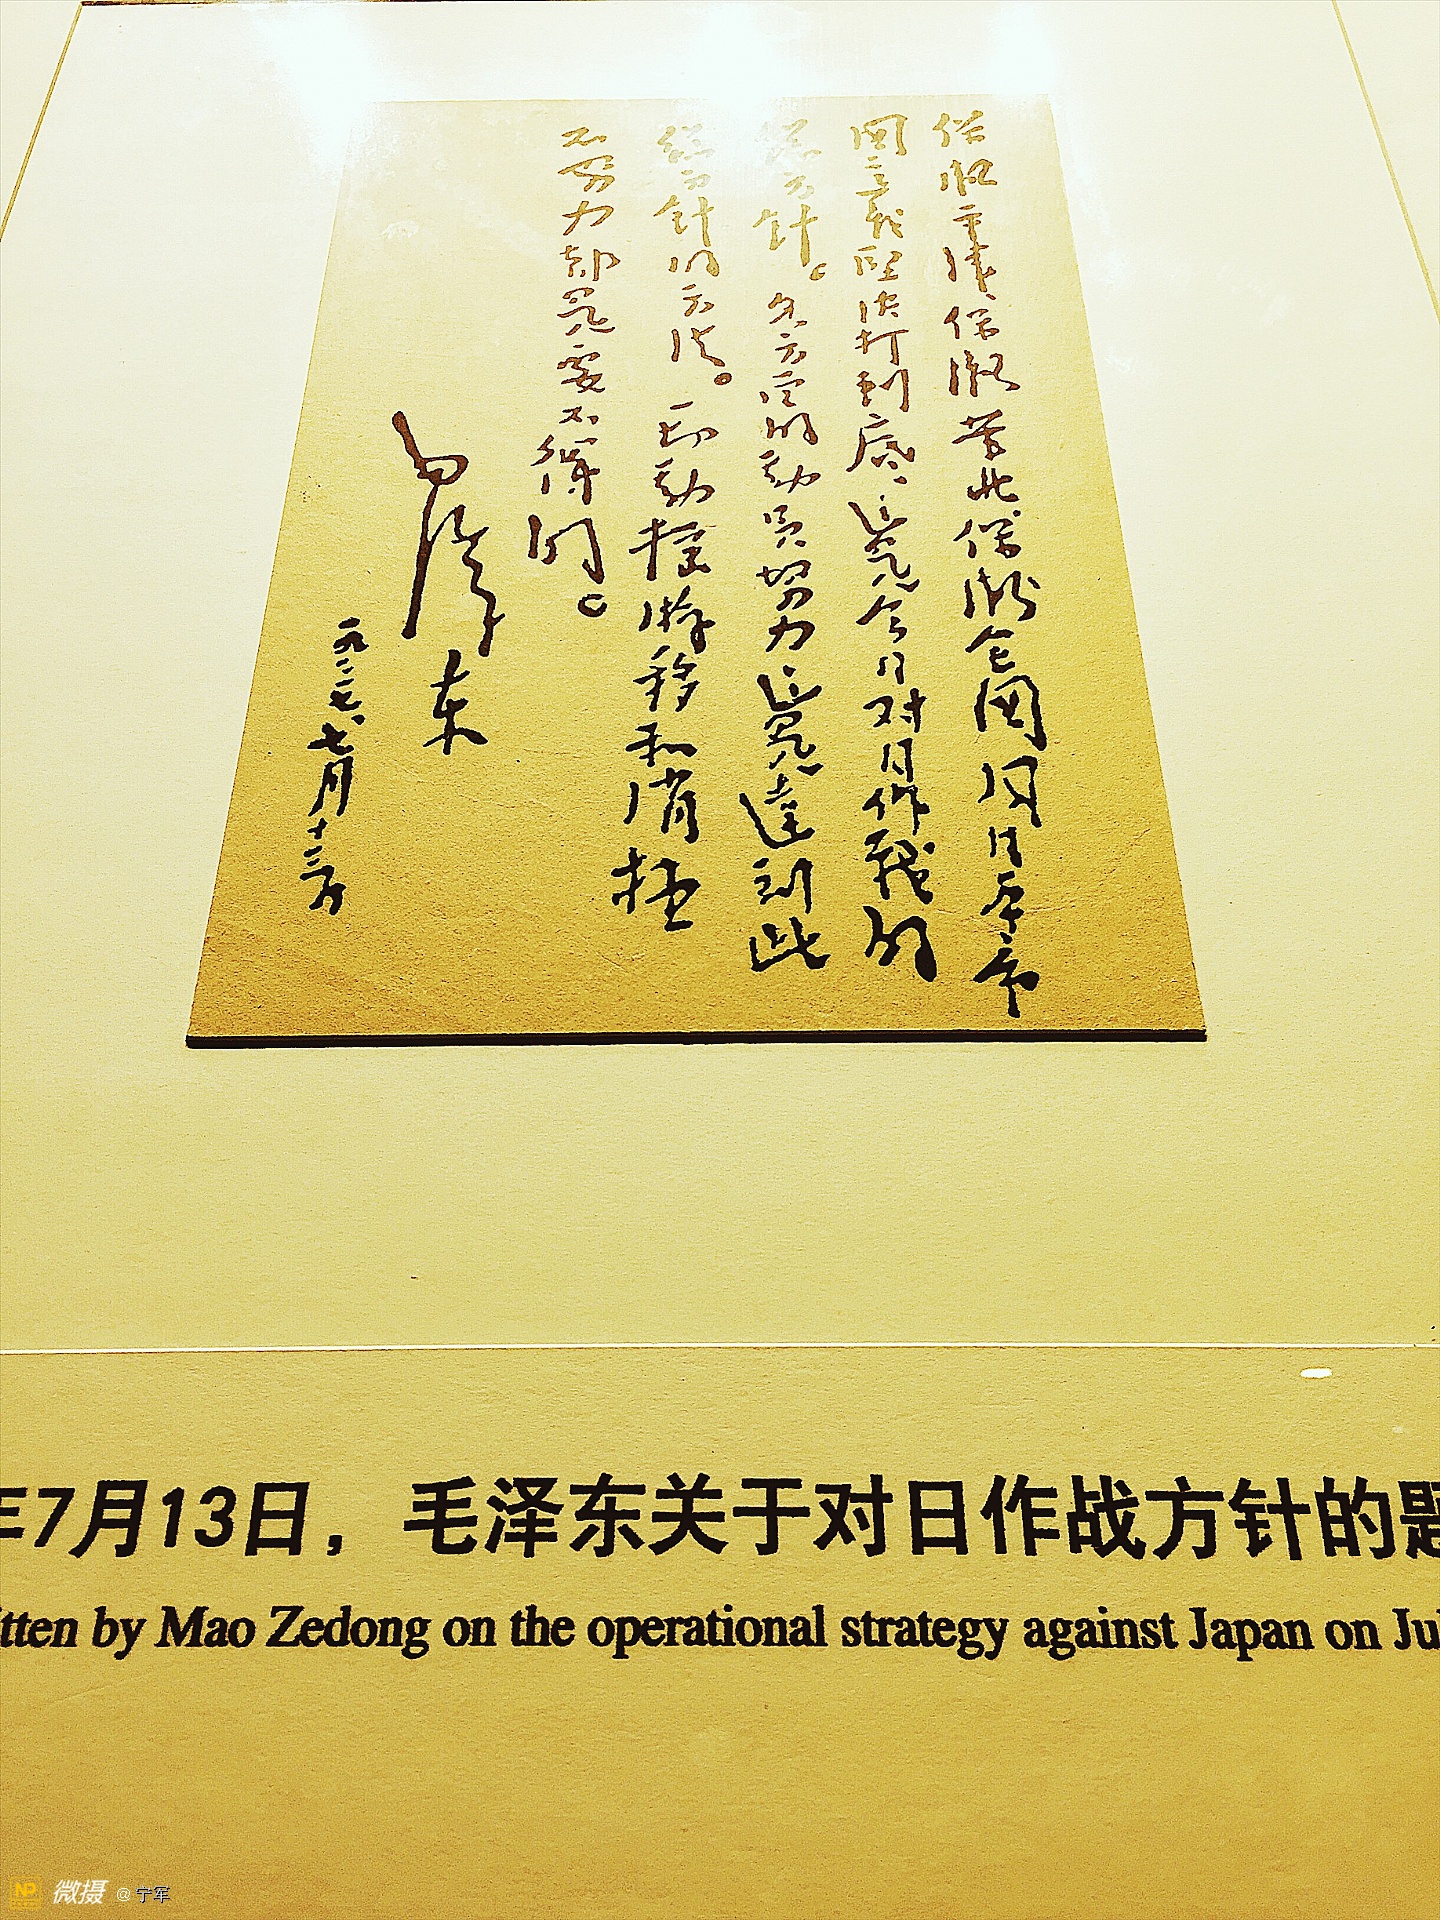 保卫平津保卫华北保卫全国同日本帝
国主义坚决打到底，这是今日对日作战的
总方针。各方面的动员努力，这是达到此
总方针的方法。一切动摇游移和消极
不努力都是要不得的。
毛泽东
一九三七、七月十三日
年7月13日，毛泽东关于对日作战方针的题
itten by Mao Zedong on the operational strategy against Japan on Jul
NP 微摄 @宁军